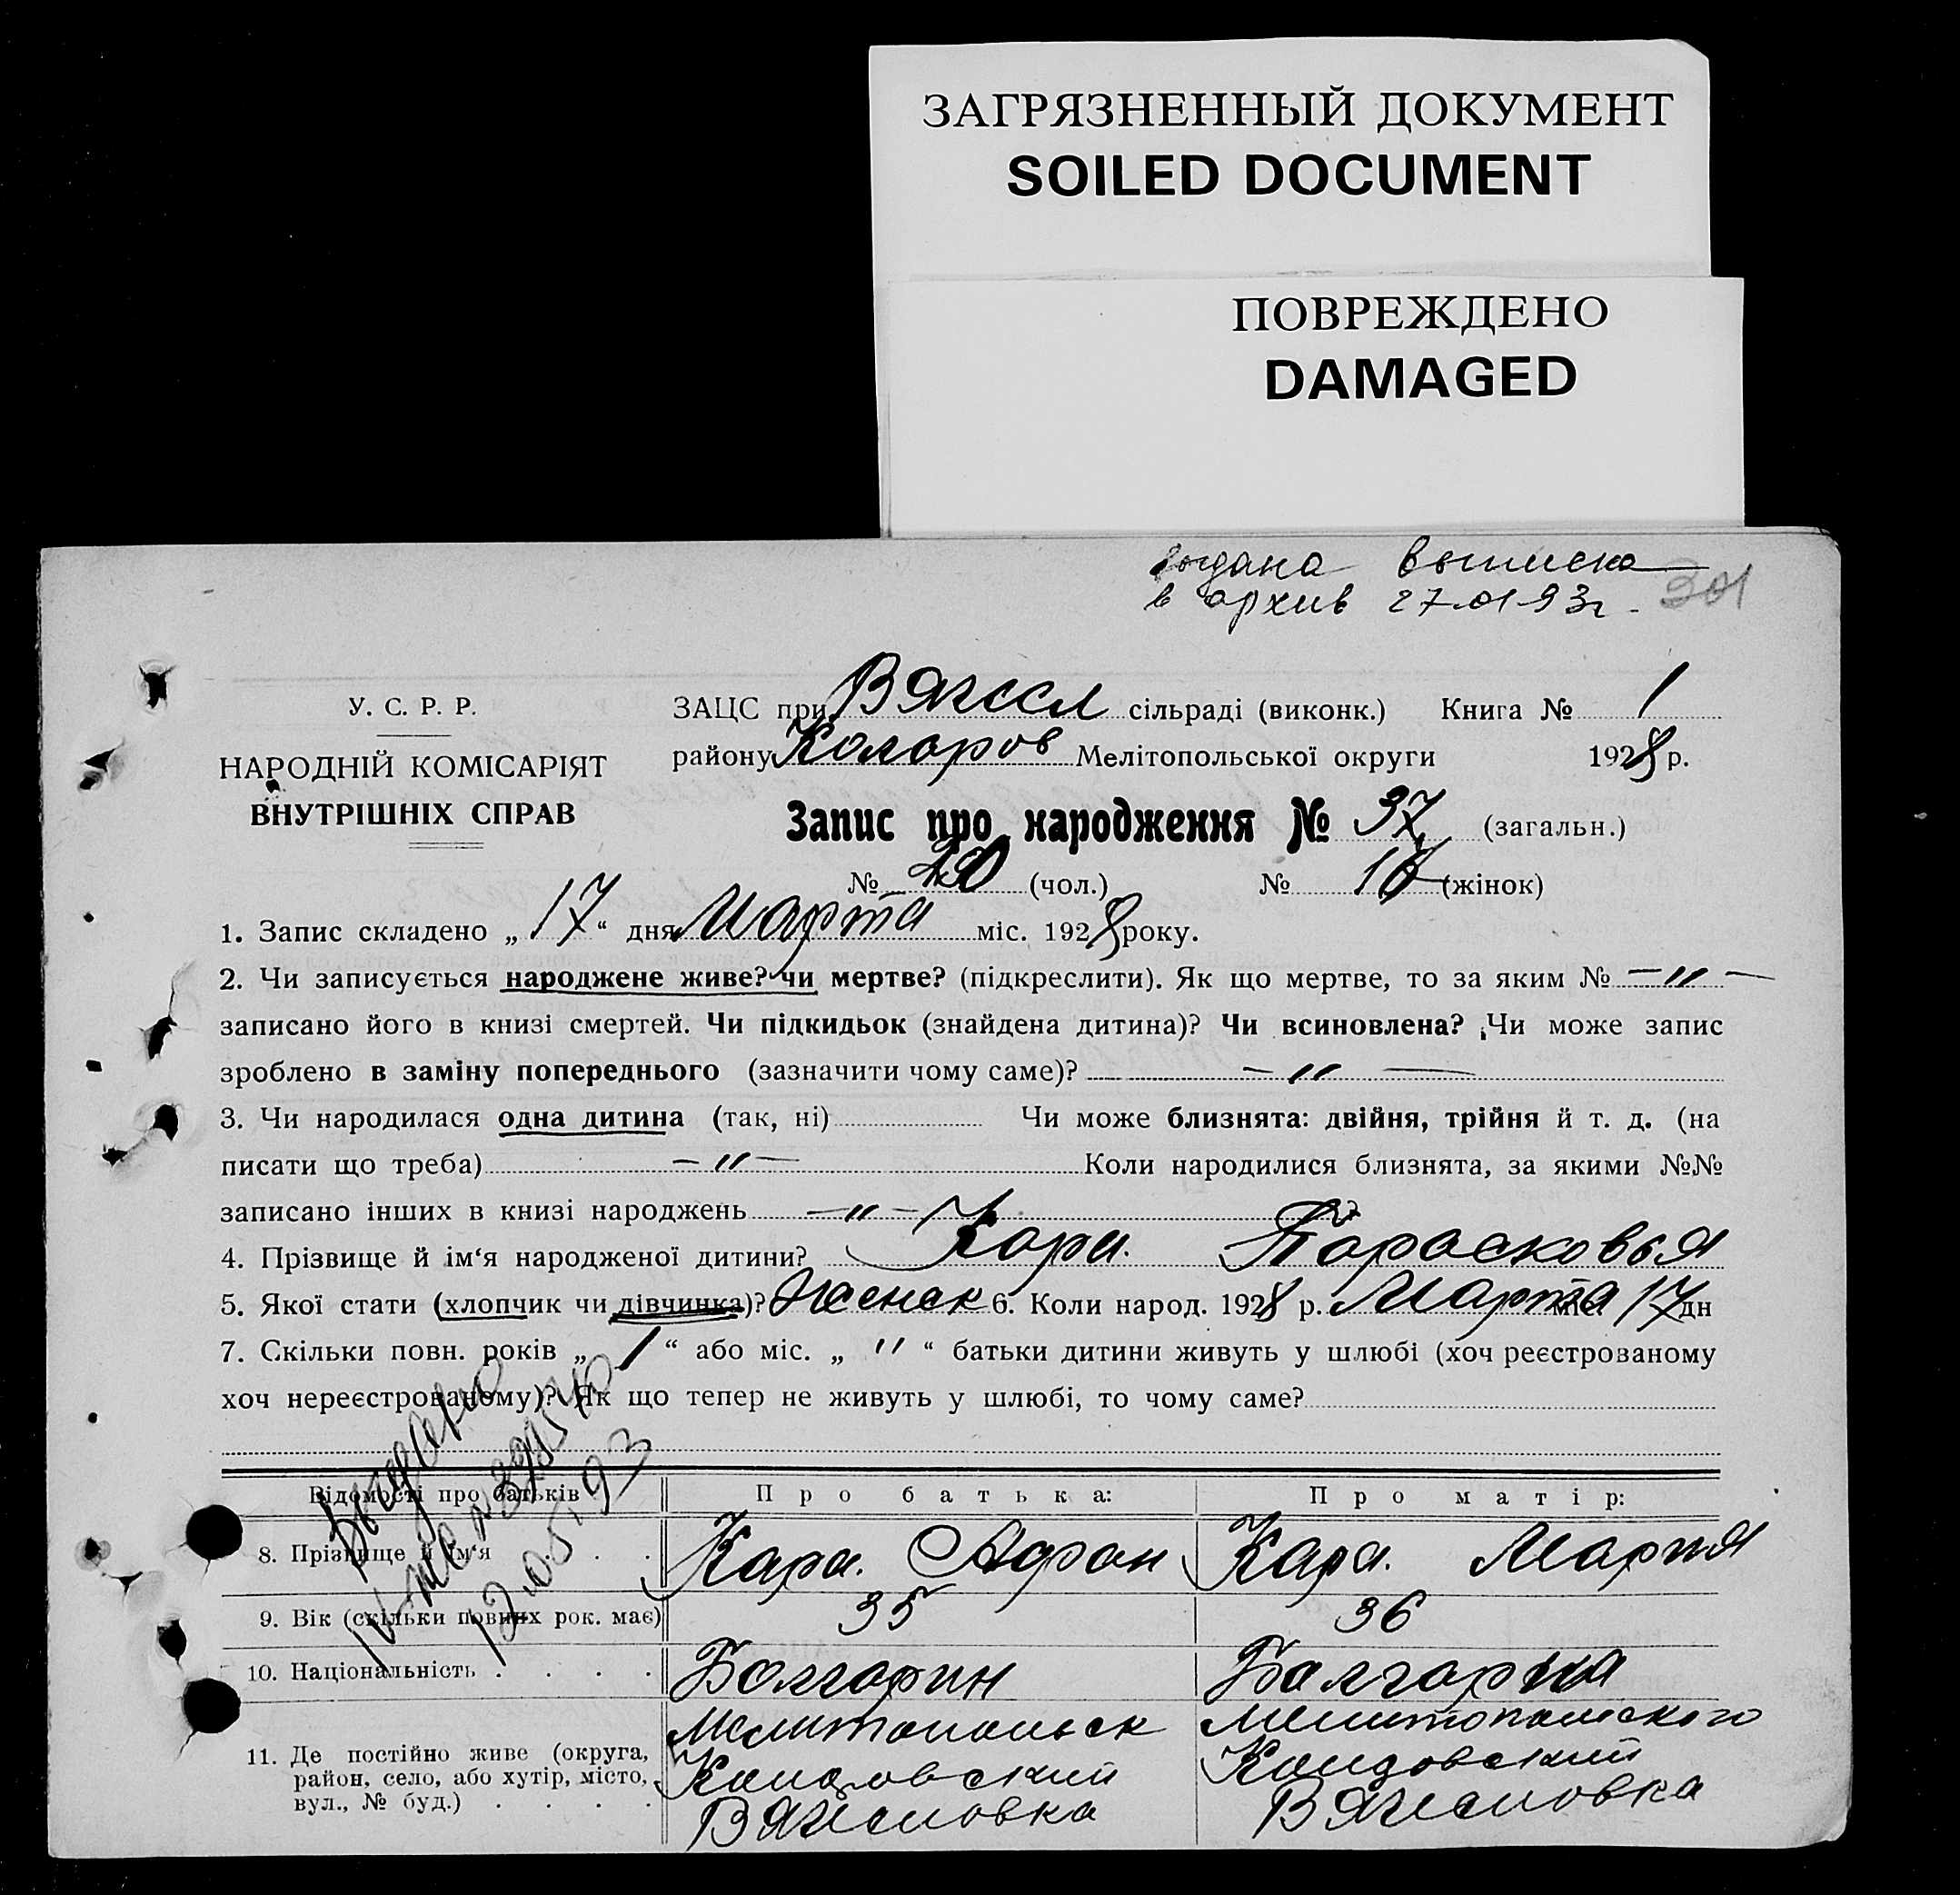 ЗАГРЯЗНЕННЫЙ ДОКУМЕНТ
SOILED DOCUMENT
ПОВРЕЖДЕНО
DAMAGED
выдана выписка
в архив 27.01.93г. 301
У. С. Р. Р.
НАРОДНІЙ КОМІСАРІЯТ
ВНУТРІШНІХ СПРАВ
ЗАЦС при Вячесл сільраді (виконк.) Книга № 1
району Коларов Мелітопольської округи 1928 р.
Запис про народження № 37 (загальн.)
№ (чол.) № (жінок)
1. Запис складено „17“ дня Марта міс. 1928 року.
2. Чи записується народжене живе? чи мертве? (підкреслити). Як що мертве, то за яким № —"—
записано його в книзі смертей. Чи підкидьок (знайдена дитина)? Чи всиновлена? Чи може запис
зроблено в заміну попереднього (зазначити чому саме)? —"—
3. Чи народилася одна дитина (так, ні) Чи може близнята: двійня, трійня й т. д. (на
писати що треба) —"— Коли народилися близнята, за якими №№
записано інших в книзі народжень —"—
4. Прізвище й ім‘я народженої дитини? Кара. Парасковья
5. Якої стати (хлопчик чи дівчинка)? Женск 6. Коли народ. 1928 р. Марта міс. 17 дн
7. Скільки повн. років „1“ або міс. „"“ батьки дитини живуть у шлюбі (хоч реєстрованому
хоч нереєстрованому)? Як що тепер не живуть у шлюбі, то чому саме?
Выдано
12.05.93
Відомості про батьків Про батька: Про матір:
8. Прізвище й ім‘я . . Кара. Кара. Мария
9. Вік (скільки повних рок. має) 35 36
10. Національність . . . . Болгарин Балгарка
11. Де постійно живе (округа,
район, село, або хутір, місто,
вул., № буд.) . . . .
Мелитопольск Мелитопольского
Вячесловка Вячесловка